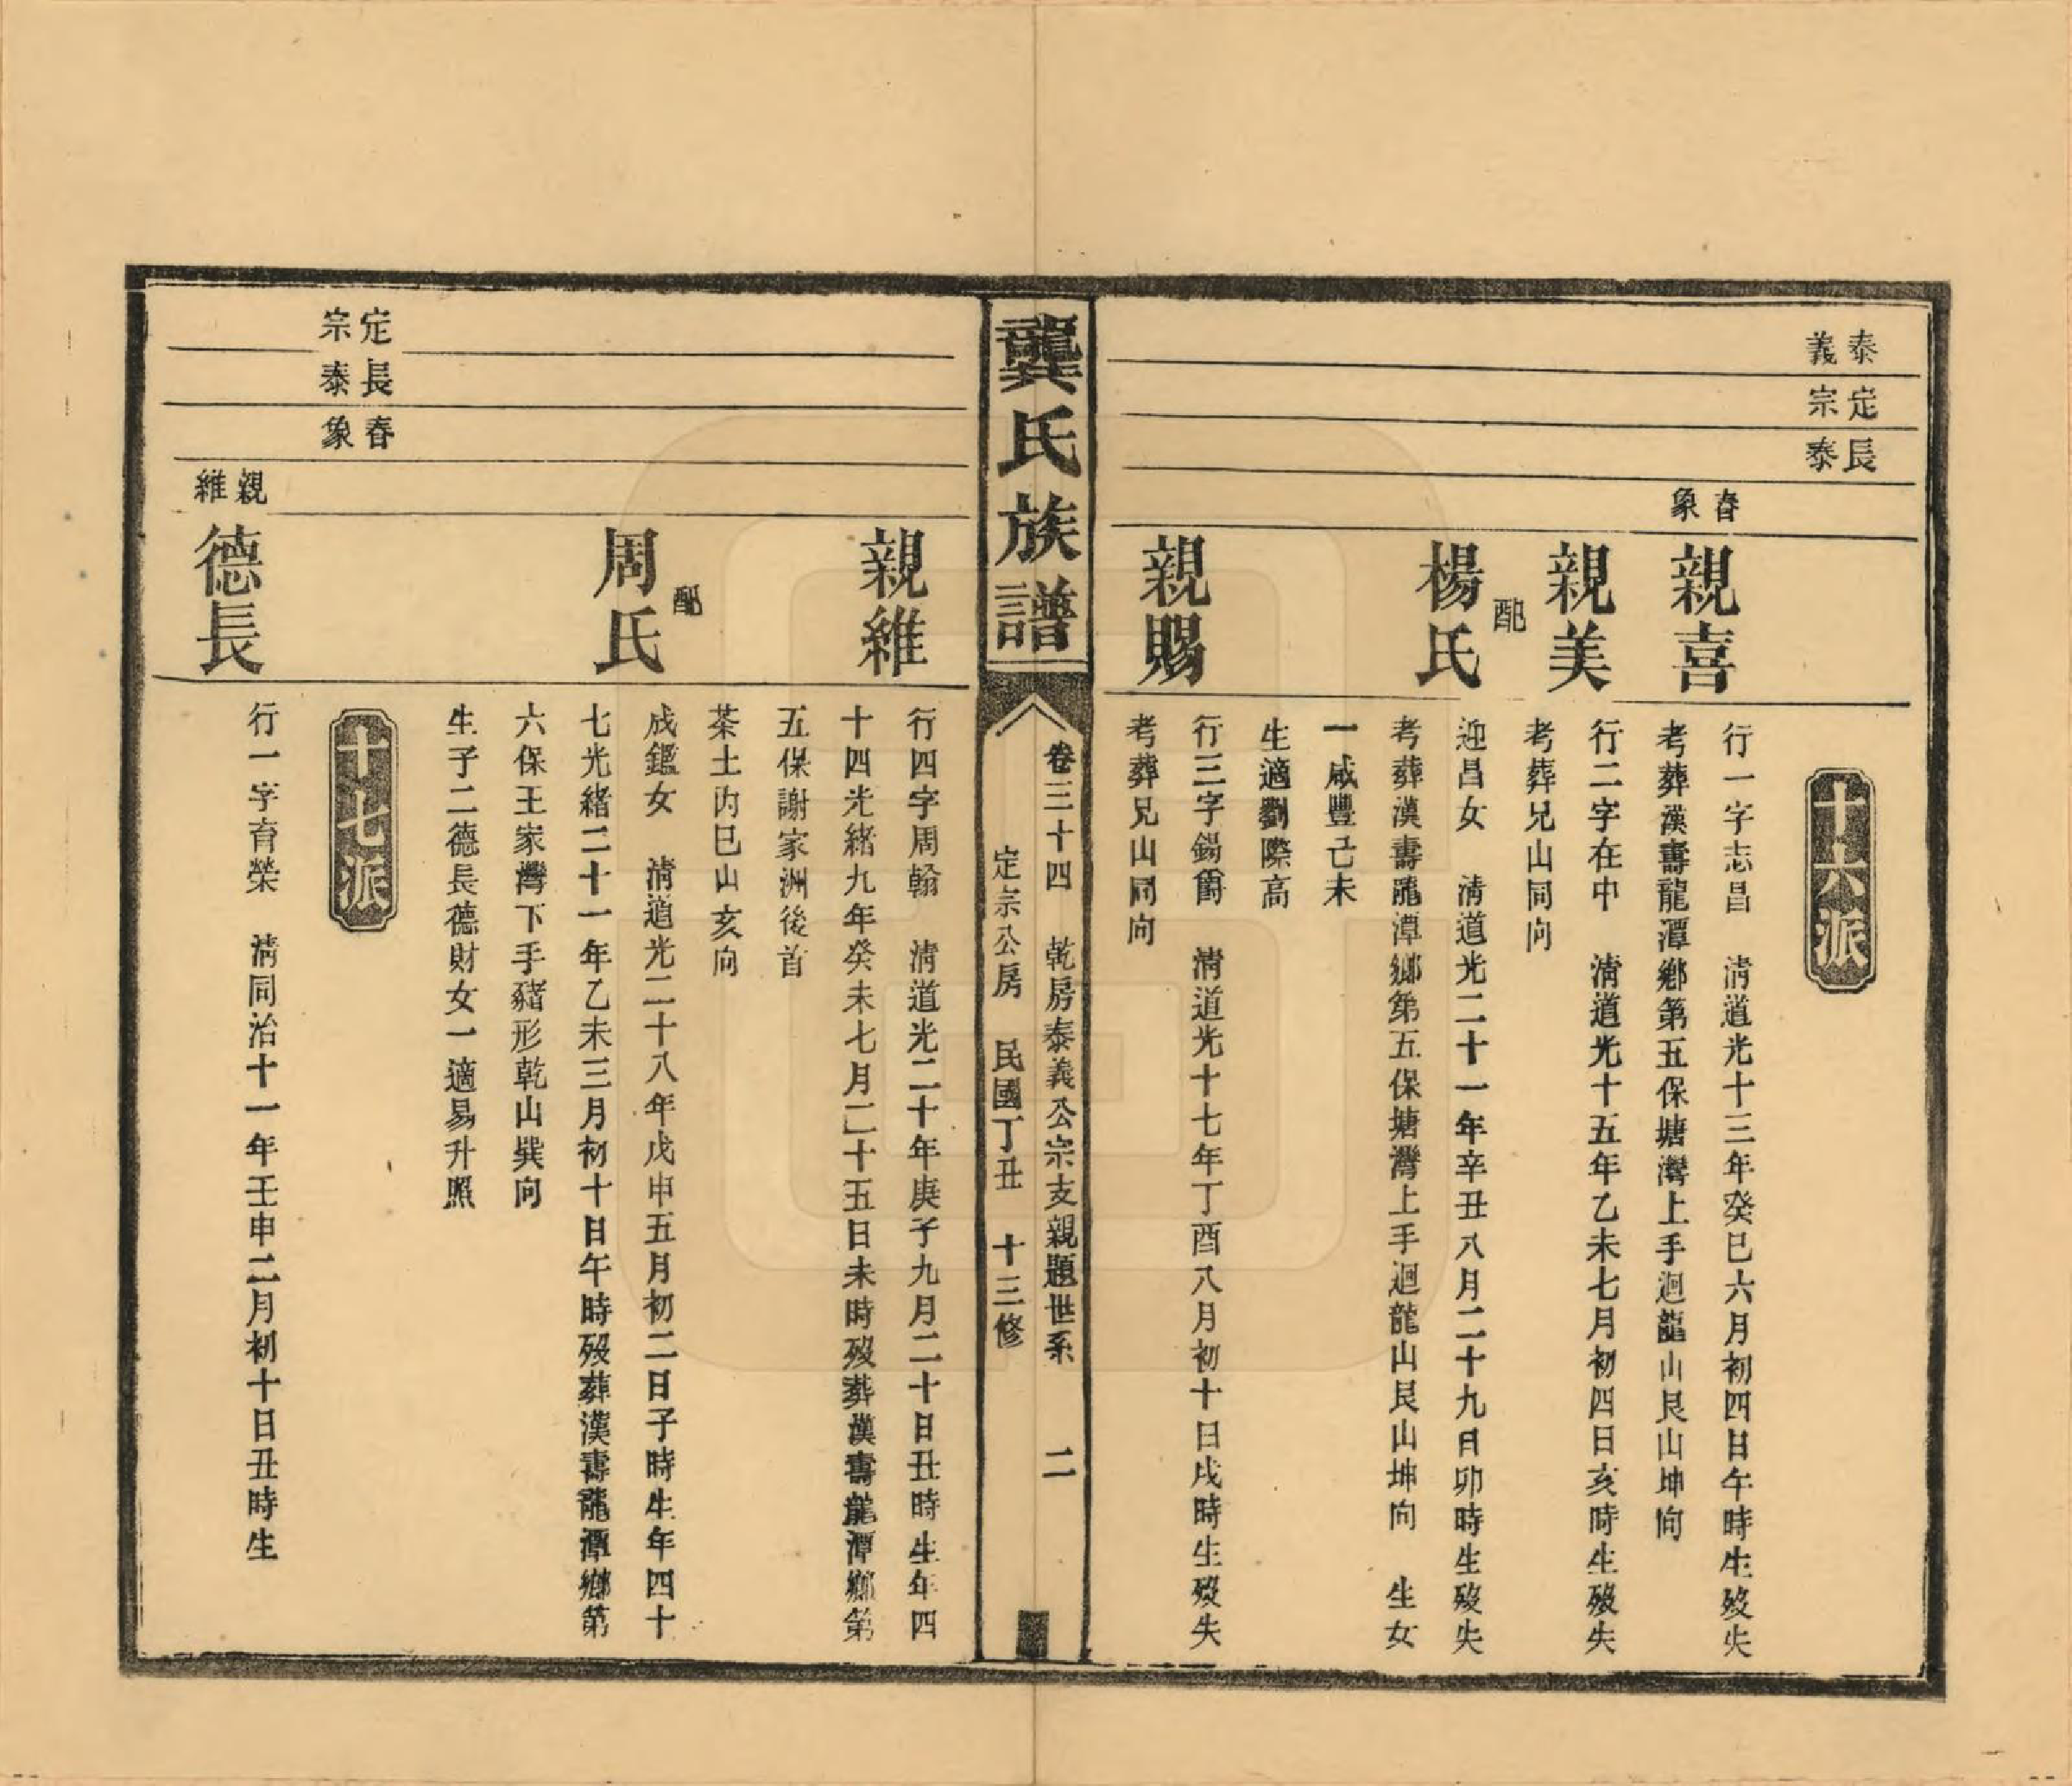 泰義
定宗
長泰
十六派
春象
親喜
行一字志昌　清道光十三年癸巳六月初四日午時生歿失
考葬漢壽龍潭鄉第五保塘灣上手迴龍山艮山坤向
親美
行二字在中　清道光十五年乙未七月初四日亥時生歿失
考葬兄山同向
配
楊氏
迎昌女　清道光二十一年辛丑八月二十九日卯時生歿失
考葬漢壽龍潭鄉第五保塘灣上手迴龍山艮山坤向　生女
一咸豐己未
生適劉際高
親賜
行三字錫爵　清道光十七年丁酉八月初十日戌時生歿失
考葬兄山同向
龔氏族譜
卷三十四　乾房泰義公宗支親題世系　二
定宗公房　民國丁丑　十三修
親維
行四字周翰　清道光二十年庚子九月二十日丑時生年四
十四光緒九年癸未七月二十五日未時歿葬漢壽龍潭鄉第
五保謝家洲後首
茶土內巳山亥向
配
周氏
成鑑女　清道光二十八年戊申五月初二日子時生年四十
七光緒二十一年乙未三月初十日午時歿葬漢壽龍潭鄉第
六保王家灣下手豬形乾山巽向
生子二德長德財女一適易升照
定宗
長泰
春象
十七派
親維
德長
行一字育榮　清同治十一年壬申二月初十日丑時生